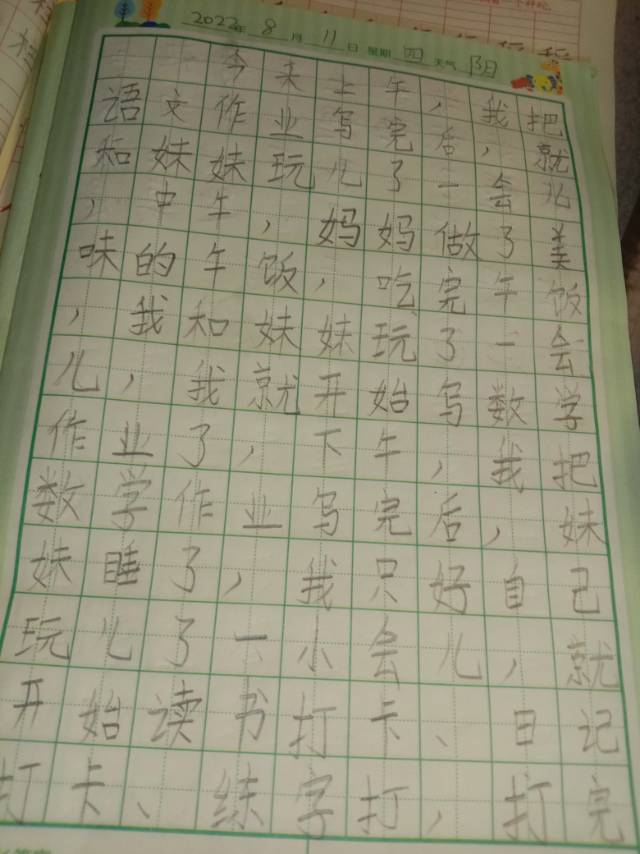 2022年 8月 11日 星期 四 天气 阴
今天上午，我把
语文作业写完后，就
和妹妹玩儿了一会儿
，中午，妈妈做了美
味的午饭，吃完午饭
，我和妹妹玩了一会
儿，我就开始写数学
作业了，下午，我把
数学作业写完后，妹
妹睡了，我只好自己
玩儿了一小会儿，就
开始读书打卡、日记
打卡、练字打，打完